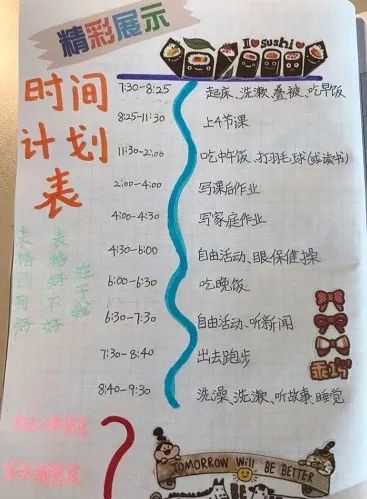 精彩展示
I ♥ sushi
时间
计划
表
7:30-8:25 起床、洗漱、叠被、吃早饭
8:25-11:30 上4节课
11:30-2:00 吃中午饭、打羽毛球(或读书)
2:00-4:00 写课后作业
4:00-4:30 写家庭作业
4:30-6:00 自由活动、眼保健操
6:00-6:30 吃晚饭
6:30-7:30 自由活动、听新闻
7:30-8:40 出去跑步
8:40-9:30 洗澡、洗漱、听故事、睡觉
表格好不好
乖巧
TOMORROW Will BE BETTER